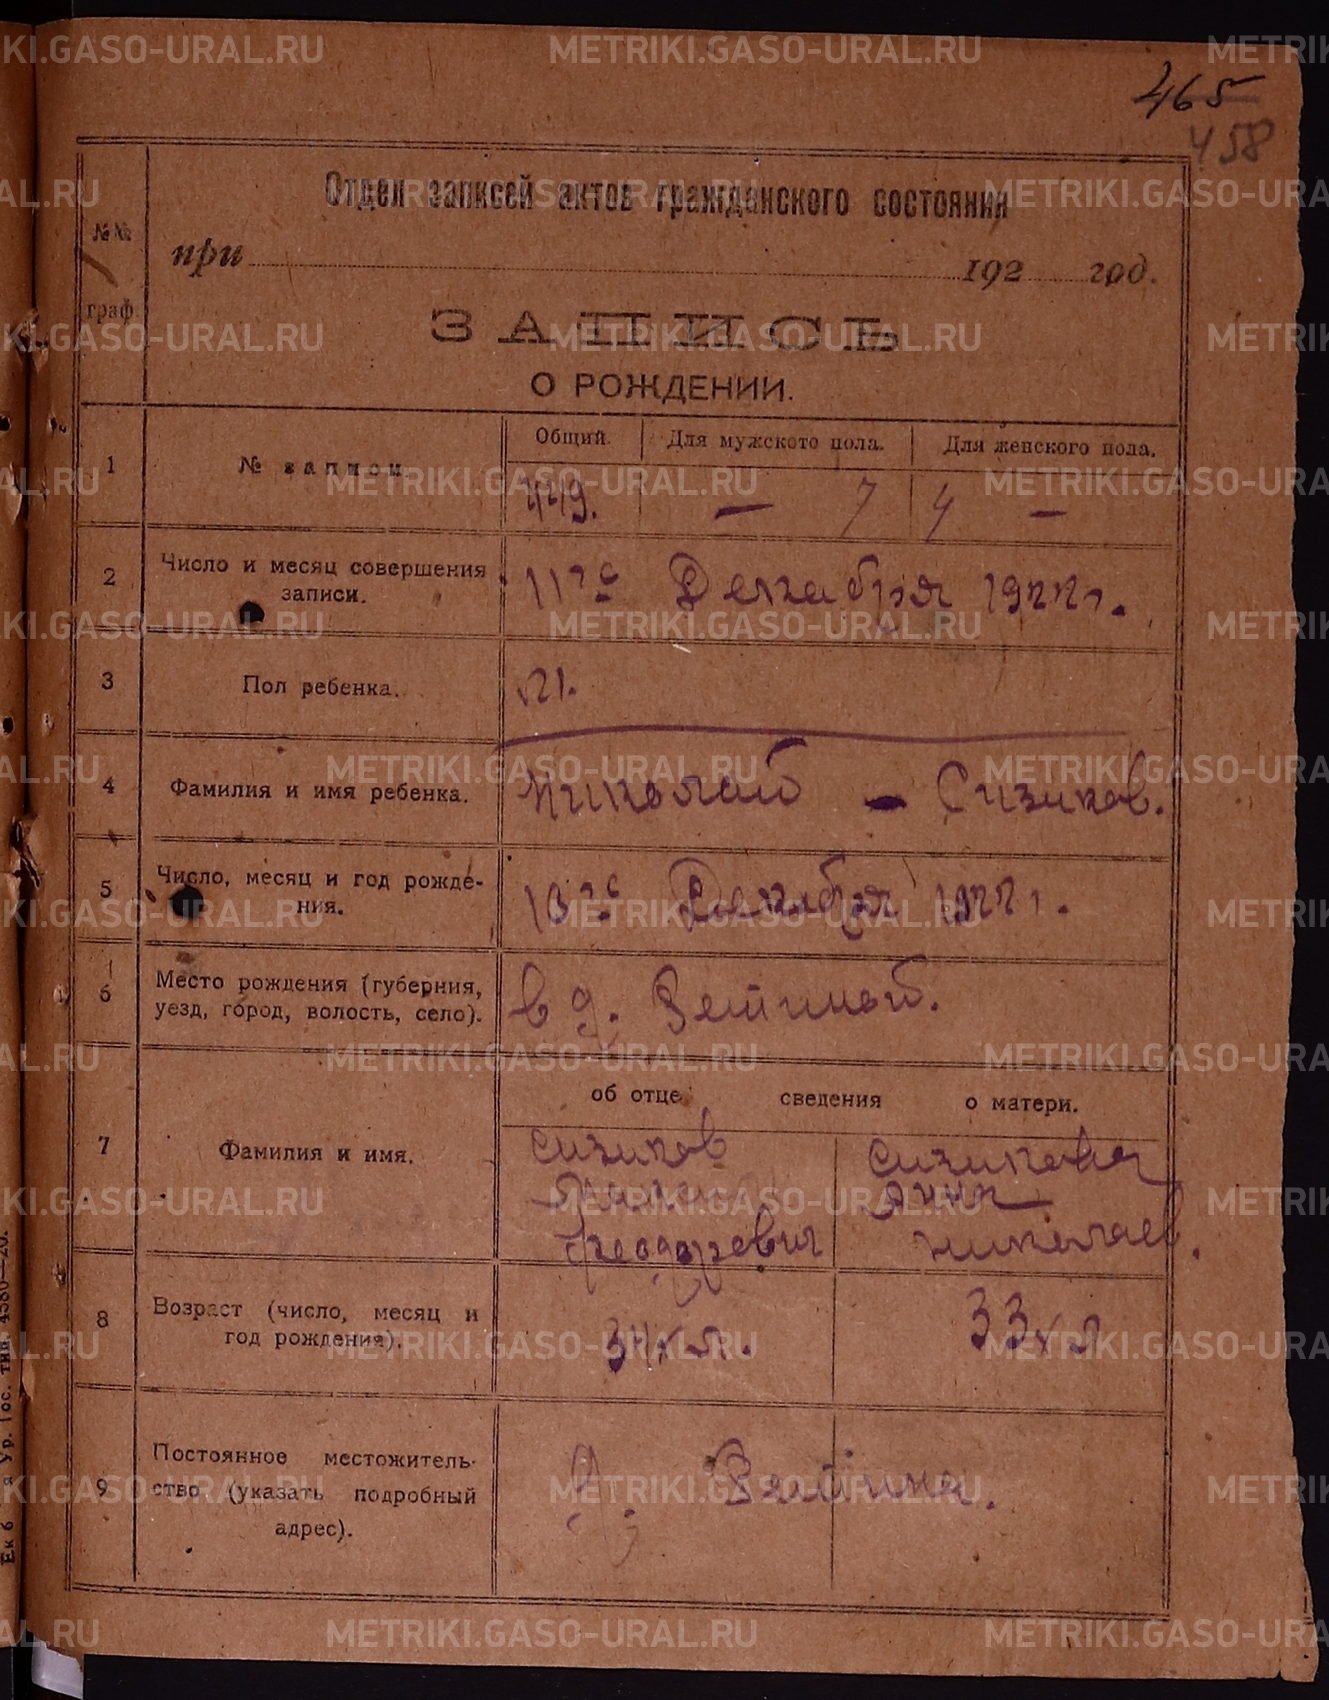 465
458
Отдел записей актов гражданского состояния
№№ граф
при 192 год.
ЗАПИСЬ
О РОЖДЕНИИ.
Общий. Для мужского пола. Для женского пола.
1 № записи
449. — 7 4 —
2 Число и месяц совершения записи.
Декабря 1922 г.
3 Пол ребенка.
М.
4 Фамилия и имя ребенка.
Николай - Сизиков.
5 Число, месяц и год рождения.
Декабря 1922 г.
6 Место рождения (губерния, уезд, город, волость, село).
в д.
об отце сведения о матери.
7 Фамилия и имя.
Сизиков
Феодорович
Сизикова
Анна
Николаев.
8 Возраст (число, месяц и год рождения).
34х л.
33х л
9 Постоянное местожительство (указать подробный адрес).
Д.
METRIKI.GASO-URAL.RU